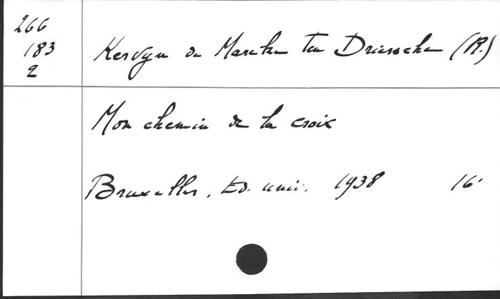 266
183
2
Kervyn de Marcke ten Driessche (R.)
Mon chemin de la croix
Bruxelles, Ed. univ. 1938 16°